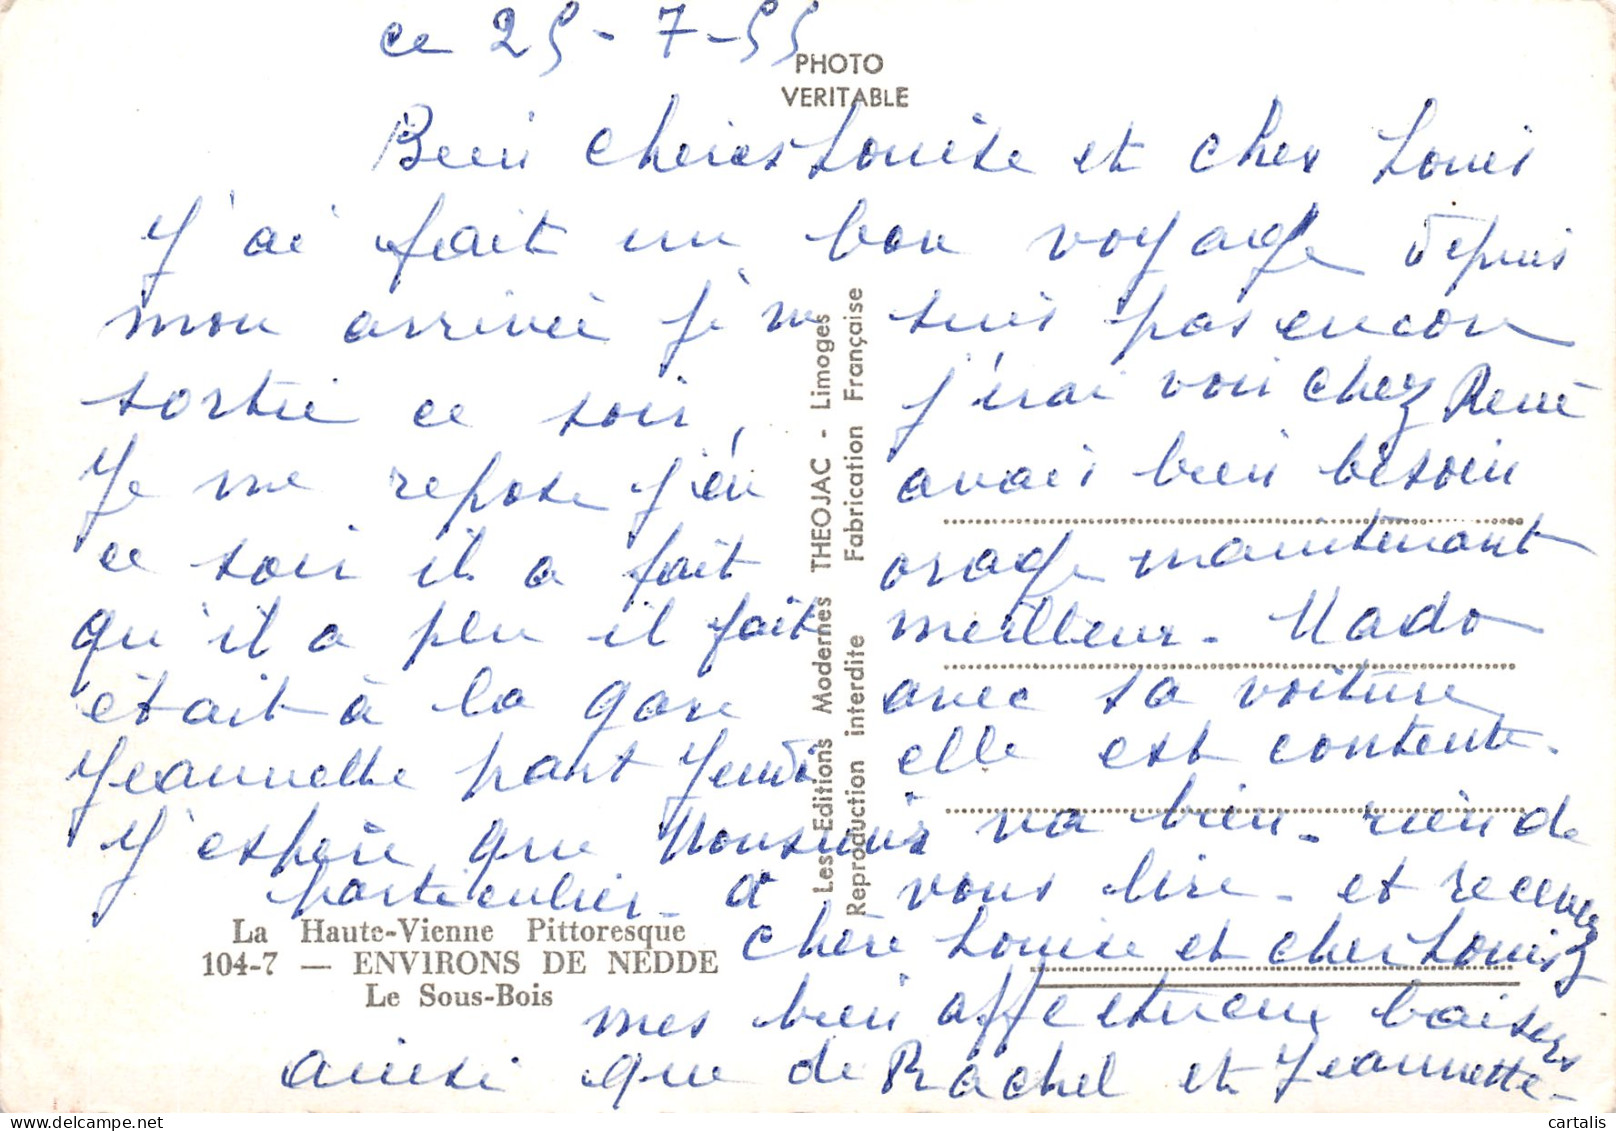 ce 25-7-55
PHOTO
VERITABLE
Bien chères Louise et cher Louis
J'ai fait un bon voyage depuis
mon arrivée je ne suis pas encore
sortie ce soir, j'irai voir chez René
Je me repose j'en avais bien besoin
ce soir il a fait orage maintenant
qu'il a plu il fait meilleur - Mado
était à la gare avec sa voiture
Jeannette part Jeudi elle est contente.
J'espère que va bien - rien de
particulier - A vous lire - et recevez
chère Louise et cher Louis
mes bien affectueux baisers
ainsi que de Rachel et Jeannette -
Les Editions Modernes THEOJAC - Limoges
Reproduction interdite Fabrication Française
La Haute-Vienne Pittoresque
104-7 — ENVIRONS DE NEDDE
Le Sous-Bois
cartalis